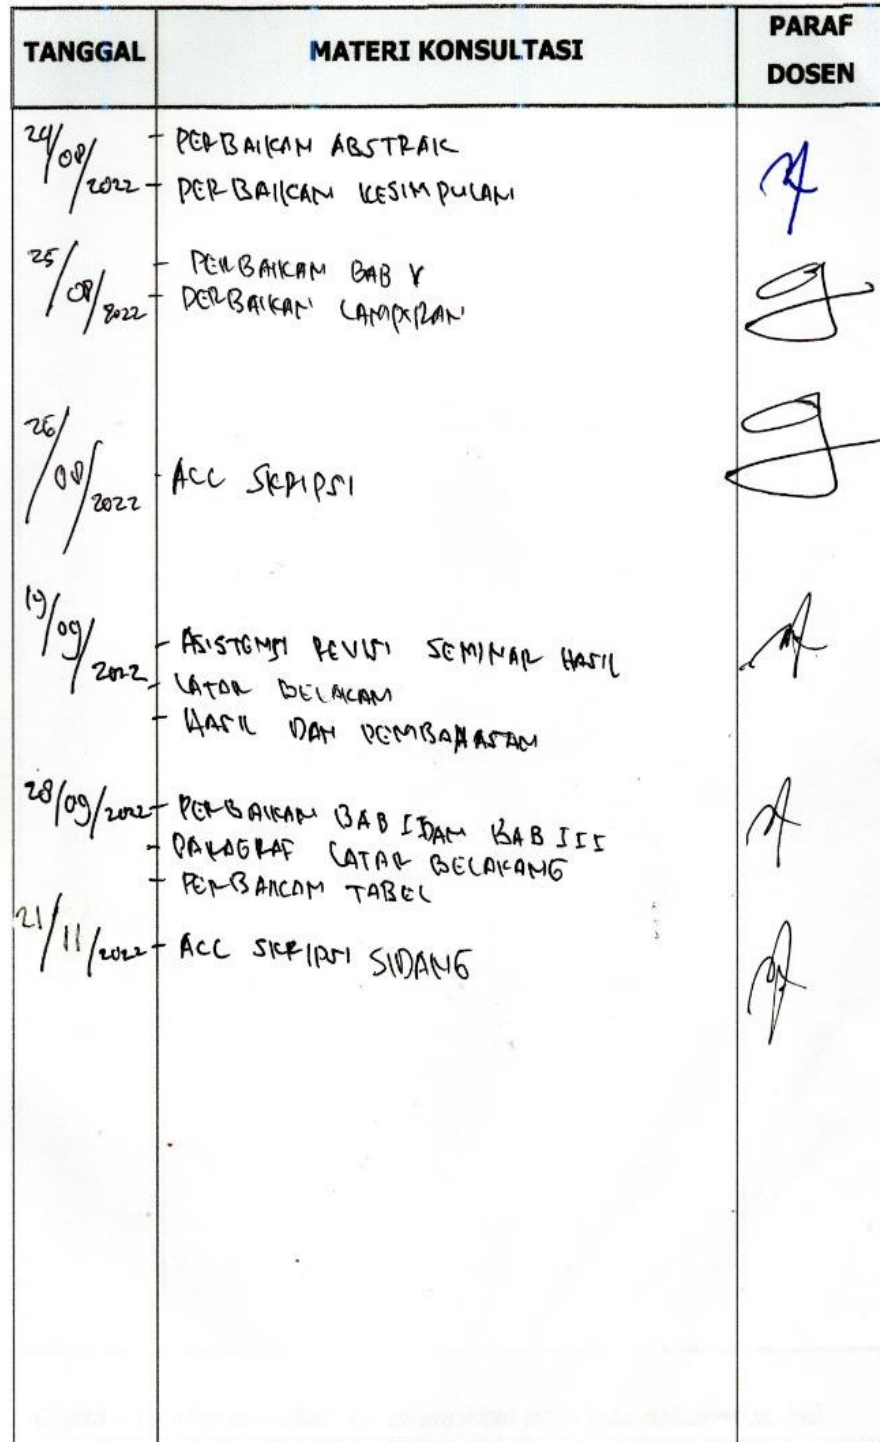 TANGGAL MATERI KONSULTASI PARAF DOSEN
24/08/2022 - PERBAIKAN ABSTRAK
- PERBAIKAN KESIMPULAN
25/08/2022 - PERBAIKAN BAB V
- PERBAIKAN LAMPIRAN
26/08/2022 - ACC SKRIPSI
19/09/2022 - ASISTENSI REVISI SEMINAR HASIL
- LATAR BELAKANG
- HASIL DAN PEMBAHASAN
28/09/2022 - PERBAIKAN BAB I DAN BAB III
- PARAGRAF LATAR BELAKANG
- PERBAIKAN TABEL
21/11/2022 - ACC SKRIPSI SIDANG